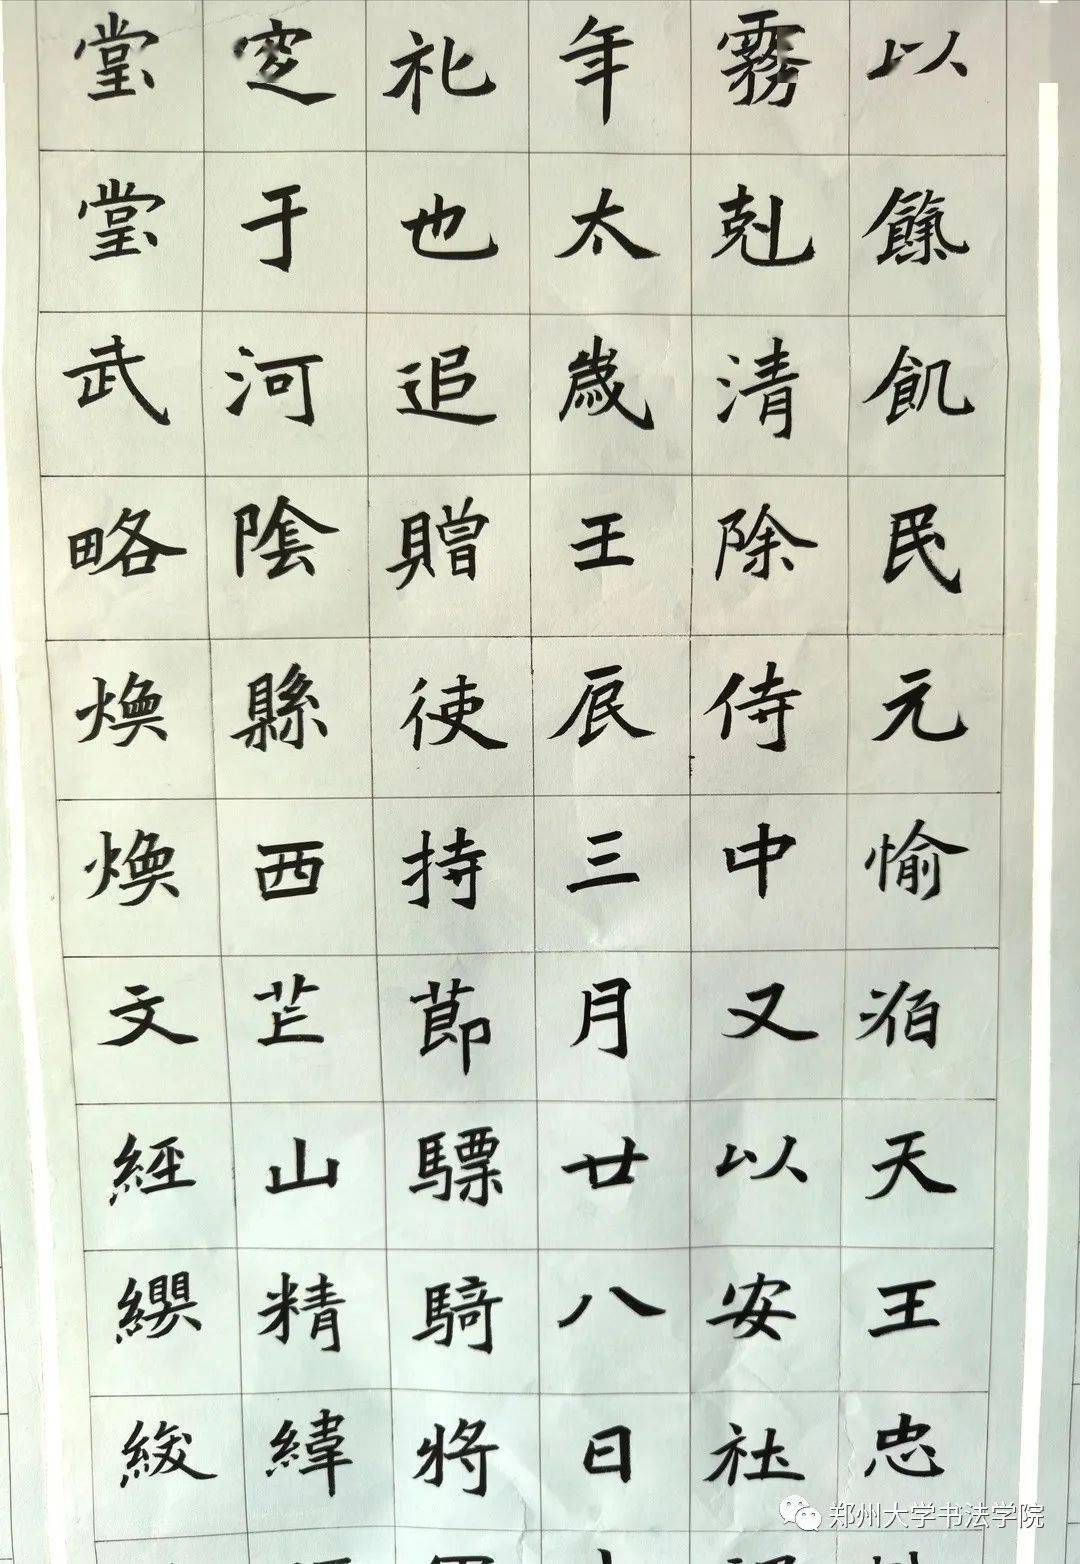 以餘飢民元愉㳊天王忠
霧剋清除侍中又以安社
年太歲王辰三月廿八日
礼也追贈使持莭驃騎將
窆于河陰縣西芒山精緯
堂堂武略煥煥文經纓綏
郑州大学书法学院